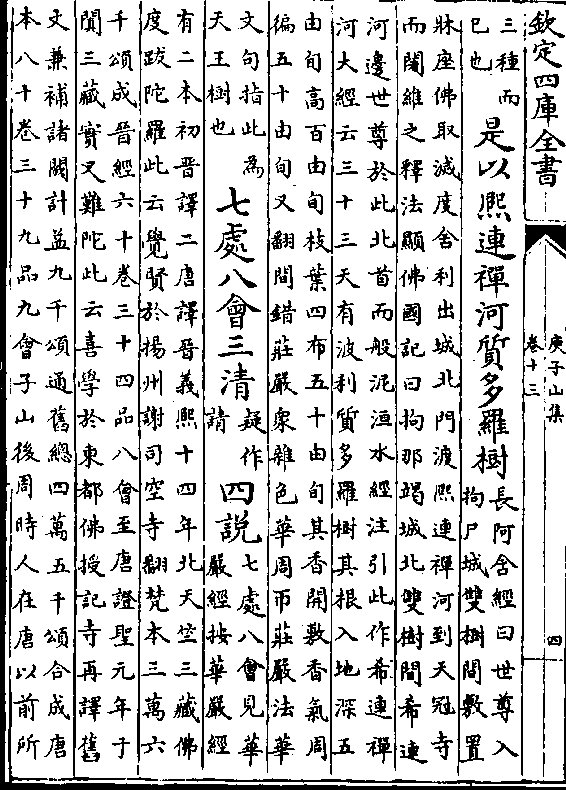 欽定四庫全書
庚子山集
卷十三
四
三種而
巳也
是以熈連禪河質多羅樹
長阿含經曰世尊入
拘尸城雙樹間敷置
牀座佛取滅度舍利出城北門渡熈連禪河到天冠寺
而闍維之釋法顯佛國記曰拘那竭城北雙樹間希連
河邊世尊於此北首而般泥洹水經注引此作希連禪
河大經云三十三天有波利質多羅樹其根入地深五
由旬高百由旬枝葉四布五十由旬其香開敷香氣周
徧五十由旬又翻間錯莊嚴衆雜色華周帀莊嚴法華
文句指此為
天王樹也
七處八會三清
疑作
請
四説
七處八會見華
嚴經按華嚴經
有二本初晉譯二唐譯晉義熈十四年北天竺三藏佛
度跋陀羅此云覺賢於揚州謝司空寺翻梵本三萬六
千頌成晉經六十卷三十四品八會至唐證聖元年于
闐三藏實叉難陀此云喜學於東都佛授記寺再譯舊
文兼補諸闕計益九千頌通舊總四萬五千頌合成唐
本八十卷三十九品九會子山後周時人在唐以前所